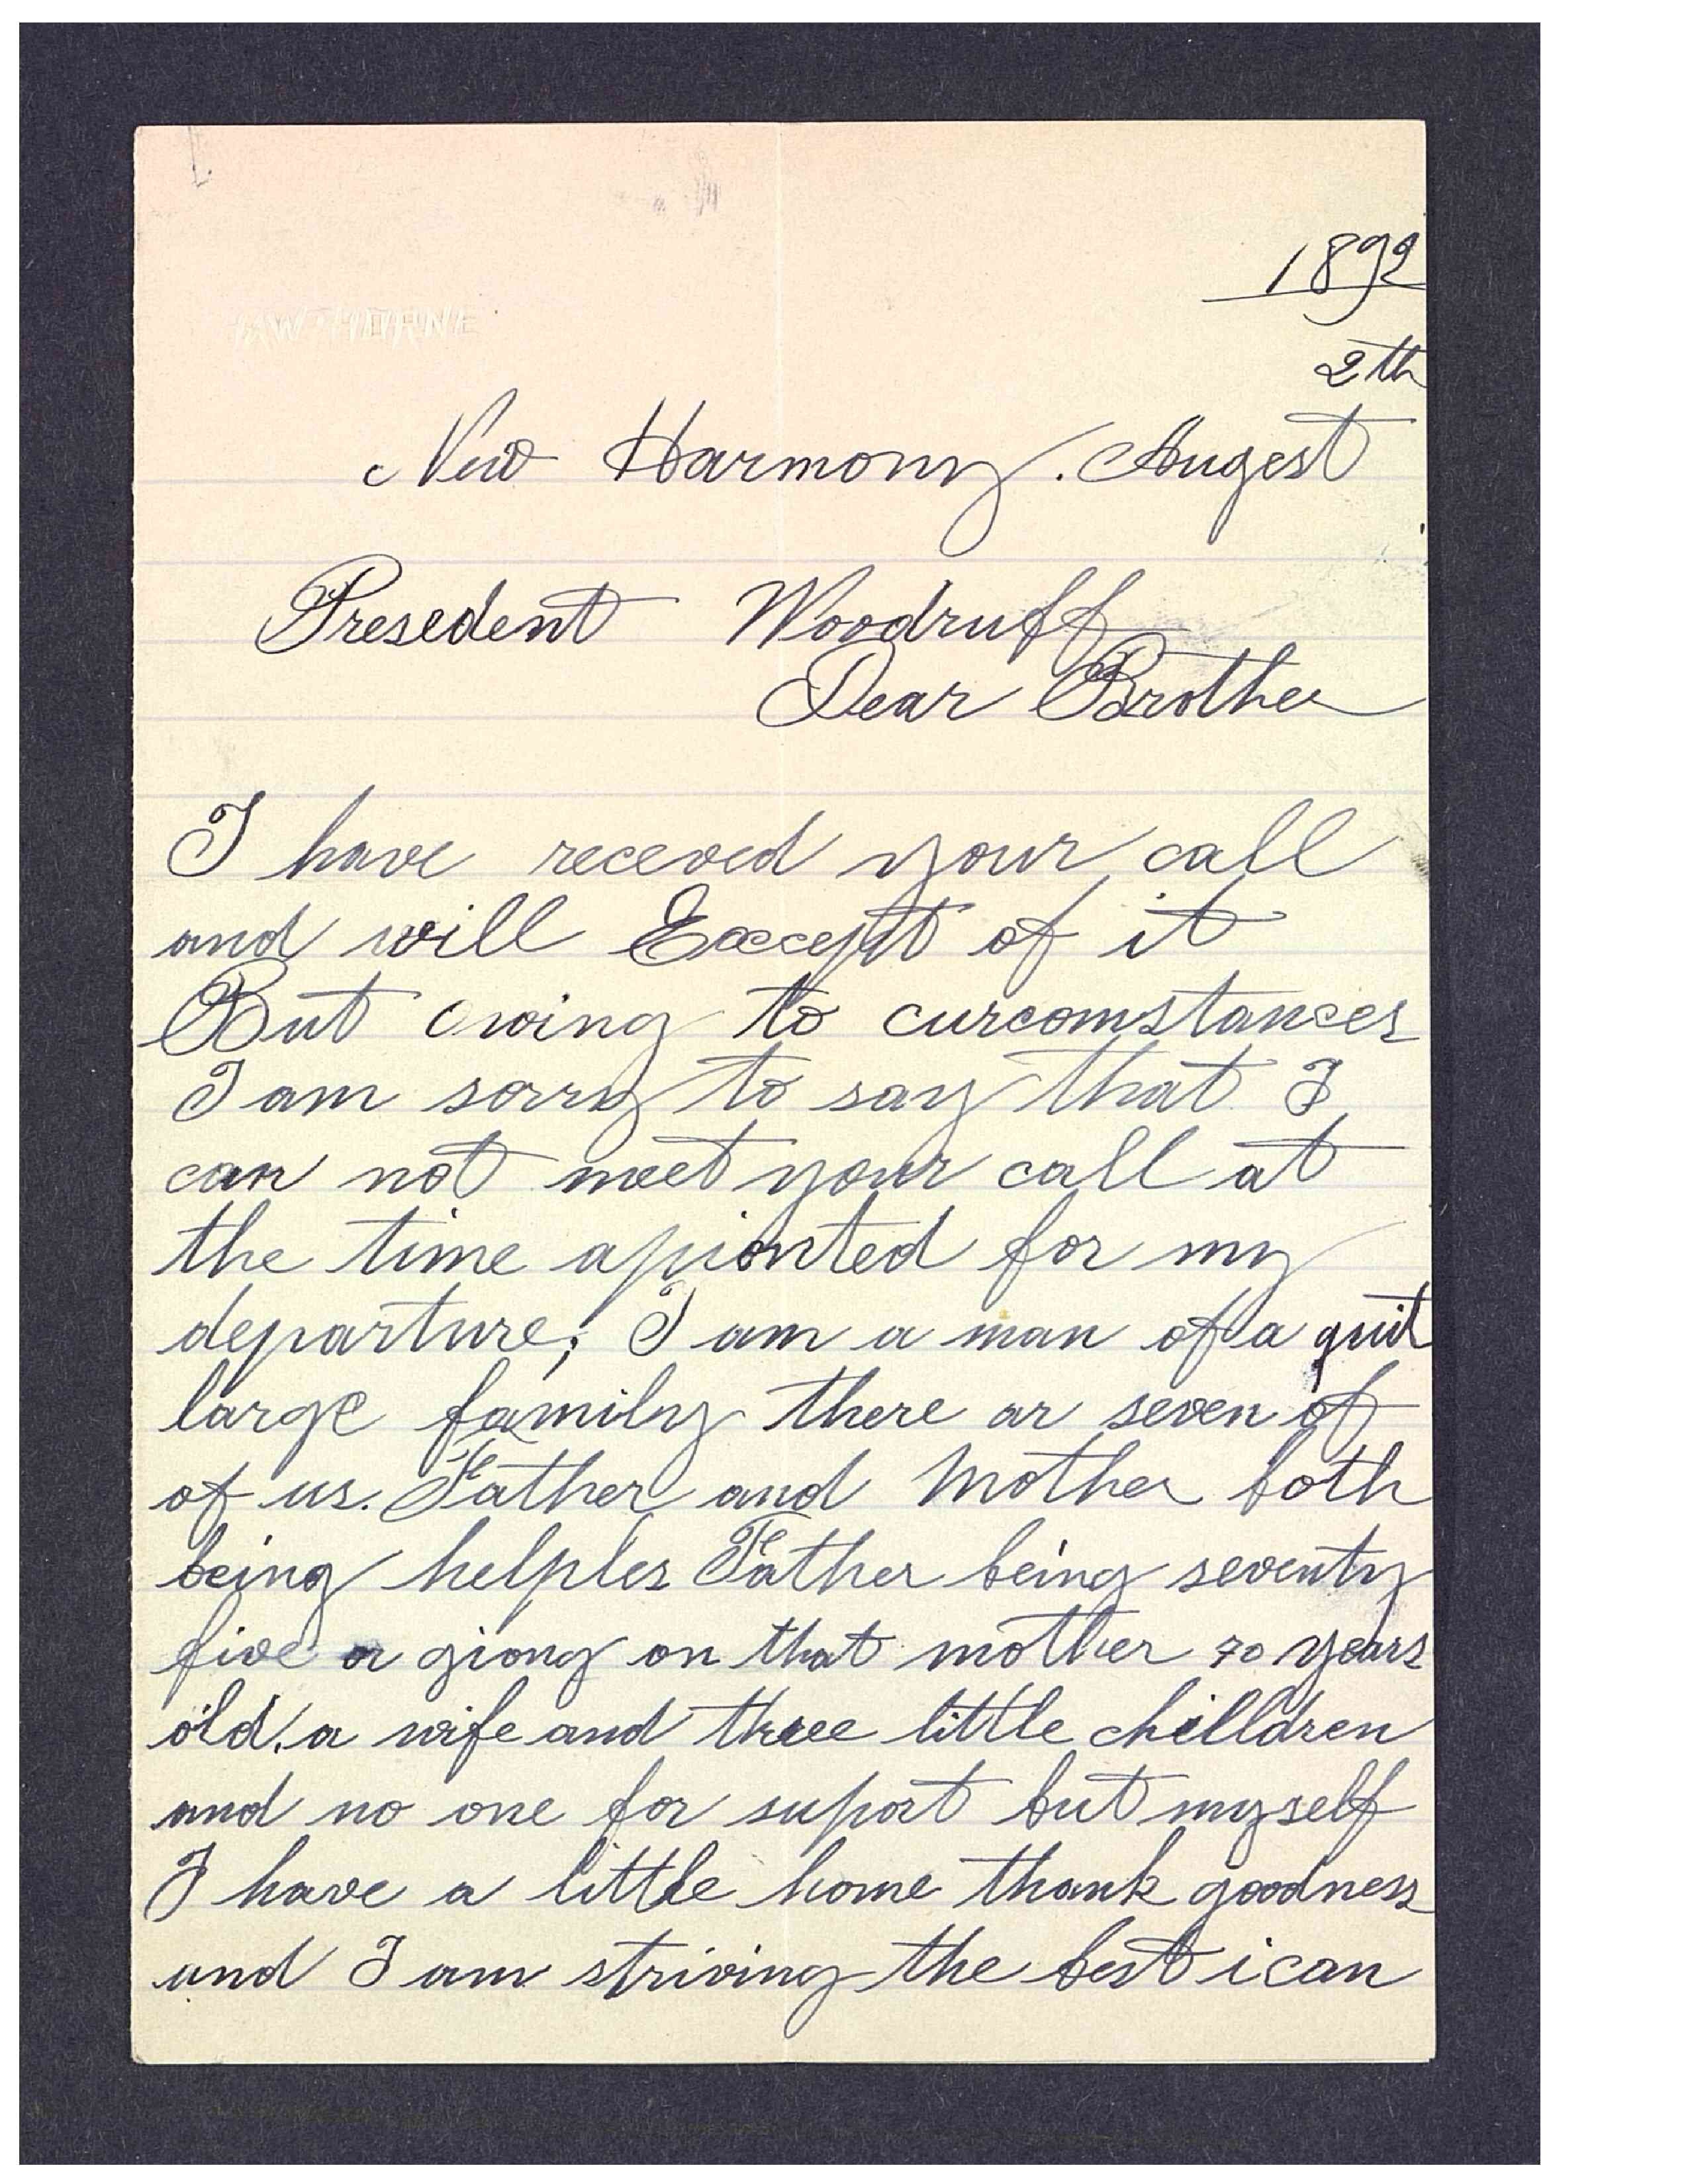 1892
2th
HAWTHORNE
New Harmony. Augest
Presedent Woodruff
Dear Brother
I have receved your call
and will Except of it
But Owing to curcomstances
I am sorry to say that I
can not meet your call at
the time apionted for my
departure; I am a man of a quit
large family there ar seven of
of us. Father and Mother both
being helples Father being seventy
five or giong on that mother 70 years
old. a wife and three little chilldren
and no one for suport but myself
I have a little home thank goodness
and I am striving the best i can